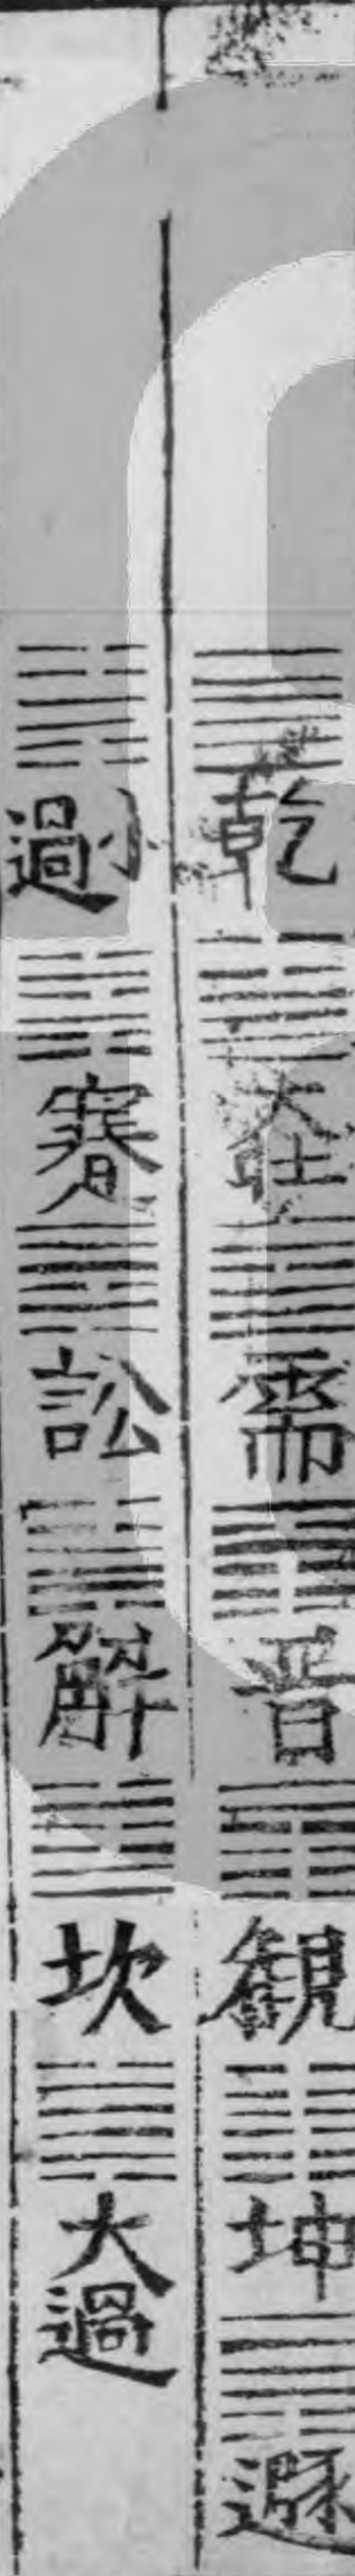 乾 大壯 需 晋 觀 坤 遯
小過 蹇 訟 解 坎 大過